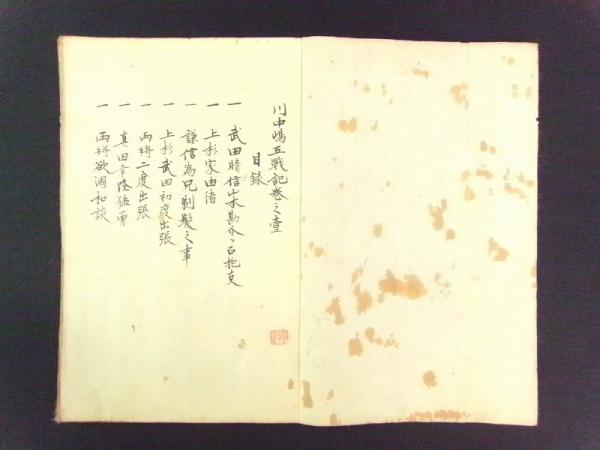 川中嶋五戦記巻之壹
目録
一 武田晴信山本勘介ヲ召抱事
一 上杉家由緒
一 謙信為兄剃髪之事
一 上杉武田初度出張
一 両将二度出張
一 真田幸隆猛勇
一 両将欲調和談